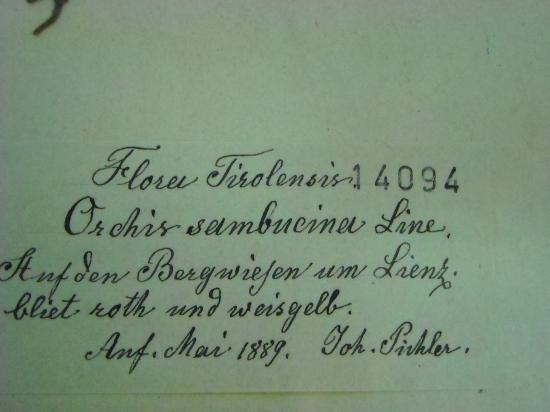 Flora Tirolensis. 14094
Orchis sambucina Line.
Auf den Bergwiesen um Lienz.
bliet roth und weisgelb.
Anf. Mai 1889. Joh. Pichler.